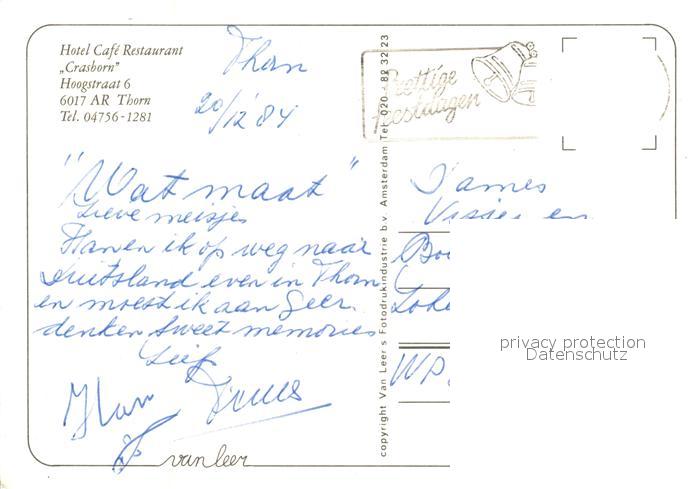 Hotel Café Restaurant
„Crasborn"
Hoogstraat 6
6017 AR Thorn
Tel. 04756-1281
Thorn
20/12 84
Prettige
feestdagen
"Wat maat"
Lieve meisjes
Hanen ik op weg naar
Duitsland even in Thorn
en moest ik aan Geer.
denken Sweet memories
Lief
Han
van leer
copyright Van Leer's Fotodrukindustrie b.v. Amsterdam Tel. 020 - 82 32 23
Dames
Visser en
privacy protection
Datenschutz